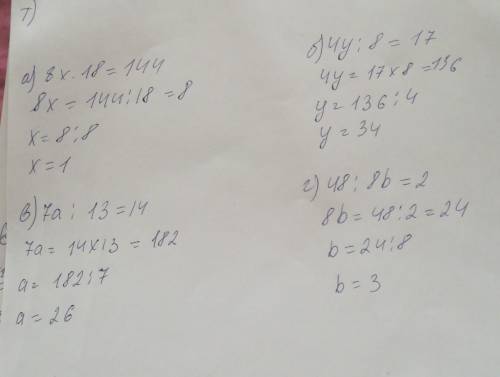 7)
а) 8x · 18 = 144
8x = 144 : 18 = 8
x = 8 : 8
x = 1
б) 4y : 8 = 17
4y = 17 x 8 = 136
y = 136 : 4
y = 34
в) 7a : 13 = 14
7a = 14 x 13 = 182
a = 182 : 7
a = 26
г) 48 : 8b = 2
8b = 48 : 2 = 24
b = 24 : 8
b = 3